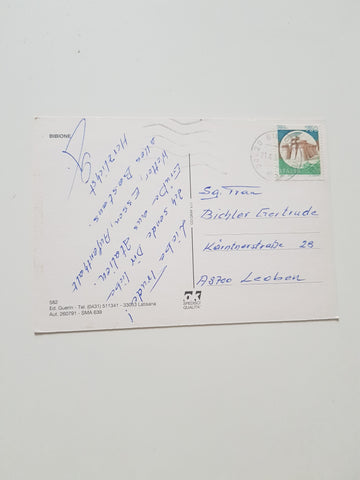 BIBIONE
Liebe Trude!
Ich sende Dir liebe
Grüße aus Italien.
Wetter, Essen, Aufenthalt
alles Bestens.
Herzlichst
Sg. Frau
Bichler Gertrude
Kärntnerstraße 28
A 8700 Leoben
582
Ed. Guerin - Tel. (0431) 511341 - 33053 Latisana
Aut. 260791 - SMA 639